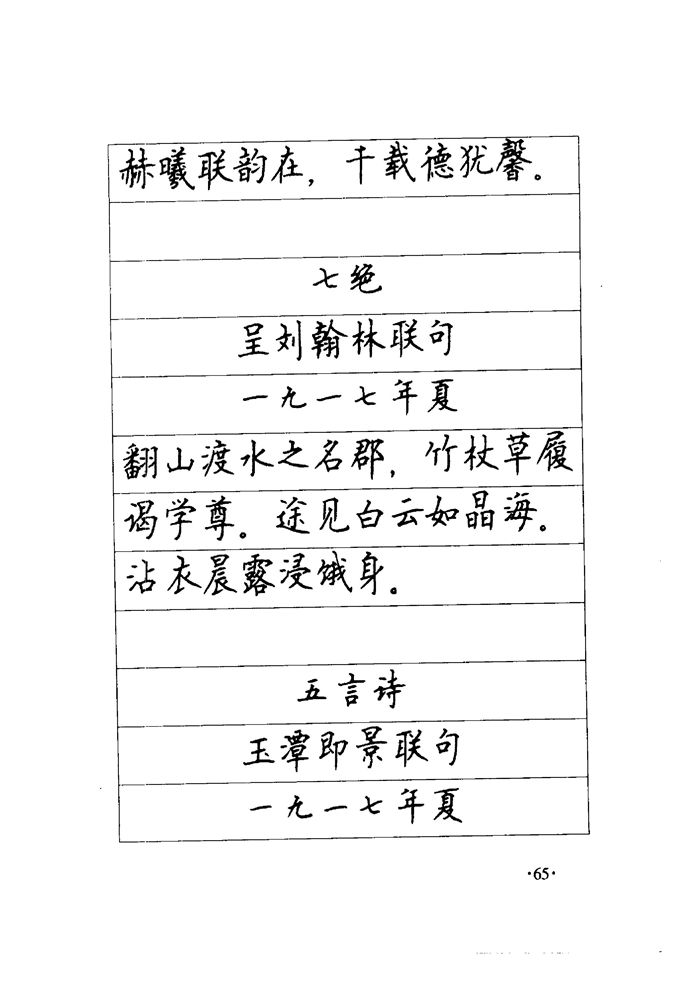 赫曦联韵在，千载德犹馨。
七绝
呈刘翰林联句
一九一七年夏
翻山渡水之名郡，竹杖草履
谒学尊。途见白云如晶海。
沾衣晨露浸饿身。
五言诗
玉潭即景联句
一九一七年夏
·65·